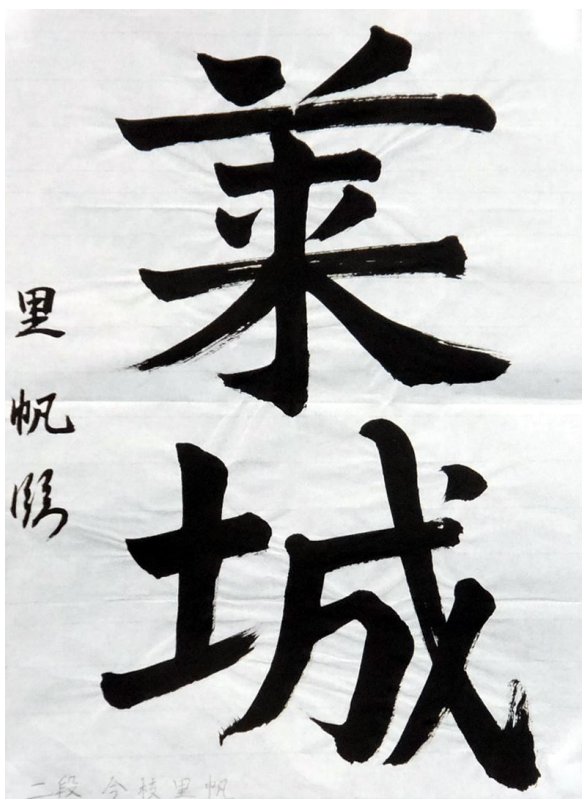 莱城
里帆臨
二段 今枝里帆